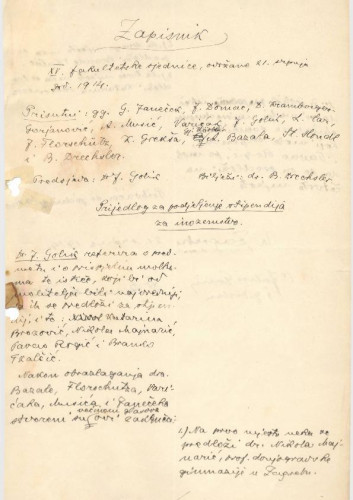 Zapisnik
XV. fakultetske sjednice, održane 21. srpnja
1914.
Prisutni: gg. G. Janeček, J. Domac, D. Kramberger-
Gorjanović, A. Musić, Varićak, J. Golik, L. Car,
J. Florschütz, Bazala, St. Hondl
i B. Drechsler.
Predsjeda: Dr J. Golik Bilježi: dr. B. Drechsler.
Prijedlog za podjeljenje stipendija
za inozemstvo.
Dr. J. Golik referira o
i o molbe-
ma te ističe, koji bi od
molitelja bili najvredniji,
da se predlože za stipen-
dij, i to: Katarina
Brozović, Nikola Majnarić,
Pavao Rogić i Branko
Tkalčić.
Nakon obrazlaganja drâ.
Bazale, Florschütza, Vari-
ćaka, Musića i Janečeka
većinom glasova
stvoreni su ovi zaključci:
1) Na prvo mjesto neka se
predloži dr. Nikola Maj-
narić, prof. donjogradske
gimnazije u Zagrebu.